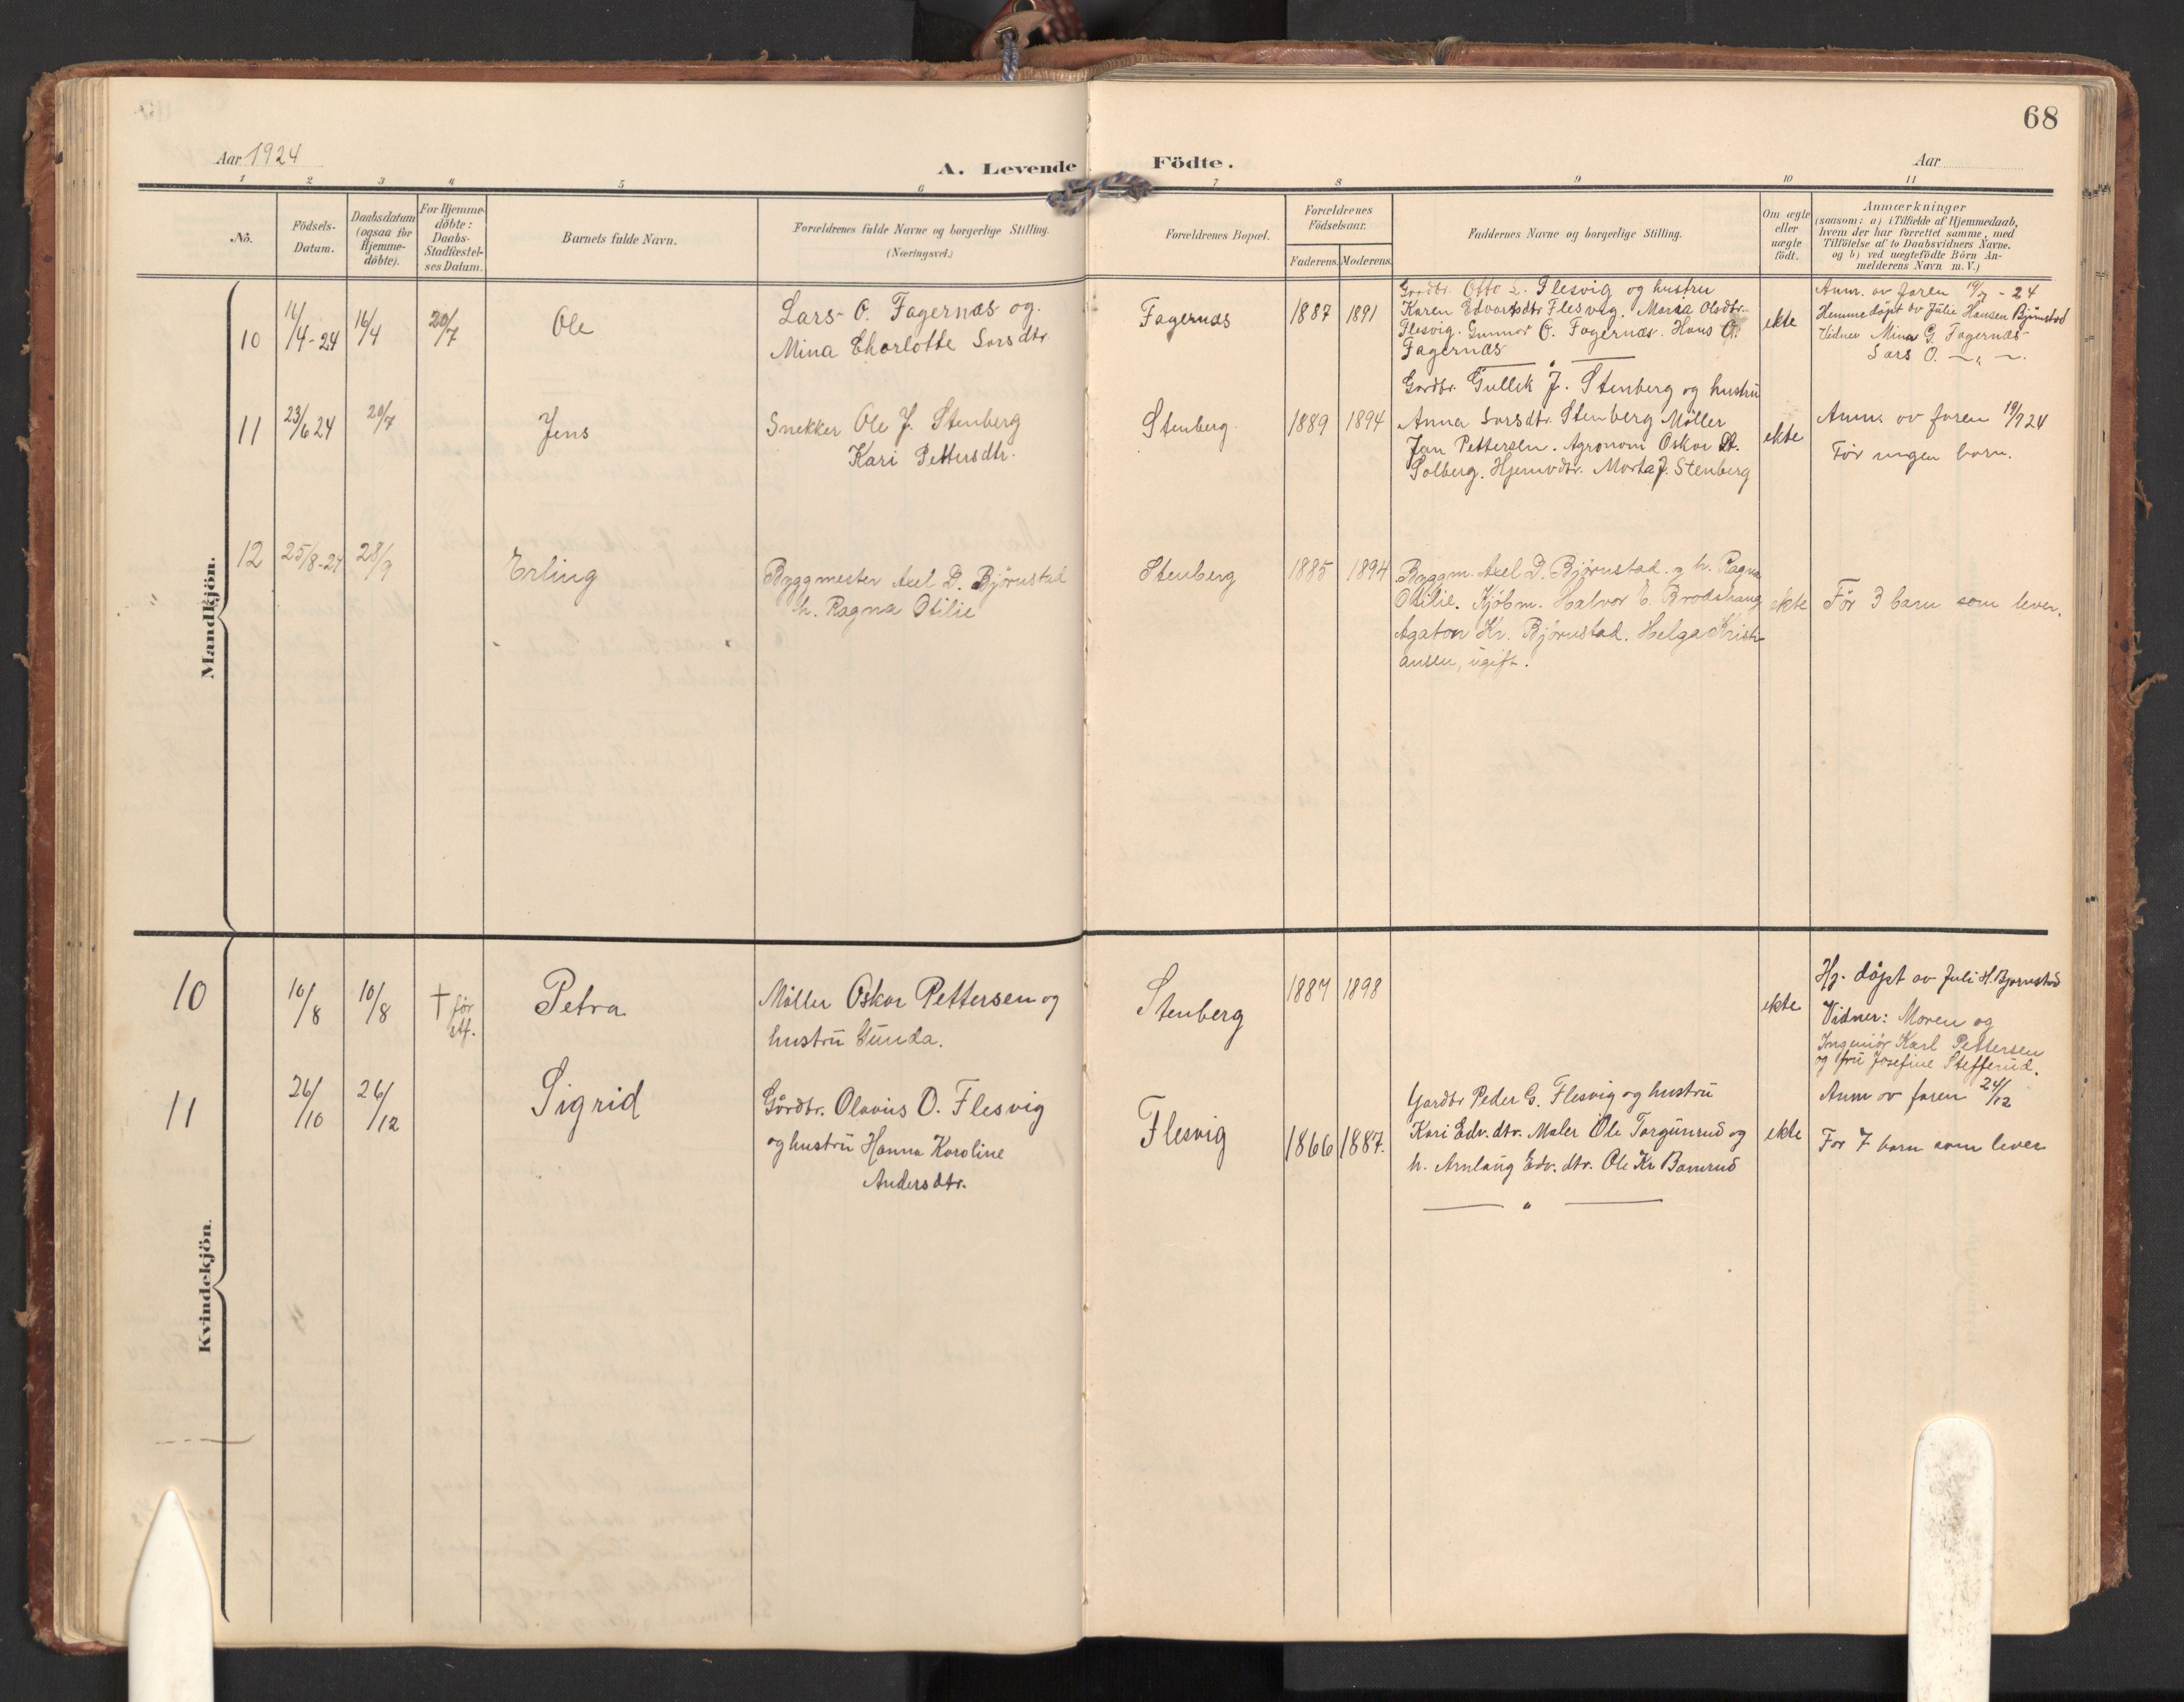 68
Aar 1924
A. Levende Födte.
Aar
1 2 3 4 5 6 7 8 9 10 11
No.
Födsels-
Datum.
Daabsdatum
(ogsaa for
Hjemme-
döbte).
For Hjemme-
döbte:
Daabs-
Stadfæstel-
ses Datum.
Barnets fulde Navn.
Forældrenes fulde Navne og borgerlige Stilling.
(Næringsvei.)
Forældrenes Bopæl.
Forældrenes
Födselsaar.
Faderens. Moderens.
Faddernes Navne og borgerlige Stilling.
Om ægte
eller
uægte
født.
Anmærkninger
(saasom: a) i Tilfælde af Hjemmedaab,
hvem der har forrettet samme, med
Tilföielse af to Daabsvidners Navne.
og b) ved uægtefödte Börn An-
melderens Navn m. V.)
Mandkjön.
10
/4-24
16/4
20/7
Ole
Lars O. Fagernæs og
Mina Charlotte Larsdtr.
Fagernæs
1887 1891
Gardbr. Otto L. Flesvig og hustru
Karen Edvartsdtr Flesvig. Maria Olsdtr.
Flesvig. Gunnar O. Fagernæs. Hans O.
Fagernæs
ekte
Anm. av faren 19/7 - 24
Hemmedøpt av Julie Hansen Bjørnstad
Vidner Mina G. Fagernæs
Lars O. -„-
11
23/6 24
20/7
Jens
Snekker Ole J. Stenberg
Kari Pettersdtr.
Stenberg.
1889 1894
Gardbr. Gullik J. Stenberg og hustru
Anna Larsdtr. Stenberg Møller
Jan Pettersen. Agronom Oskar
Solberg. Hjemvdtr. Marta J. Stenberg
ekte
Anm. av faren 19/7 24
Før ingen barn.
12
25/8-24
28/9
Erling
Byggmester Axel D. Bjørnstad
h. Ragna Otilie
Stenberg
1885 1894
Byggm. Axel D. Bjørnstad. og h. Ragna
Otilie. Kjøbm. Halvor E. Brodshaug
Agaton Kr. Bjørnstad. Helga Kristi-
ansen, ugift.
ekte
Før 3 barn som lever.
Kvindekjön.
10
10/8
10/8
† før
stf.
Petra
Møller Oskar Pettersen og
hustru Gunda.
Stenberg
1887 1898
ekte
Hj. døpt av Juli H. Bjørnstad
Vidner: Moren og
Ingeniør Karl Pettersen
og fru Josefine Stefferud.
11
26/10
26/12
Sigrid
Gårdbr. Olavus O. Flesvig
og hustru Hanna Karoline
Andersdtr.
Flesvig
1866 1887.
Gardbr Peder G. Flesvig og hustru
Kari Edv. dtr. Maler Ole Torgunrud og
h. Arnlaug Edv. dtr. Ole Kr Bamrud
— „ —
ekte
Anm av faren 24/12
Før 7 barn som lever